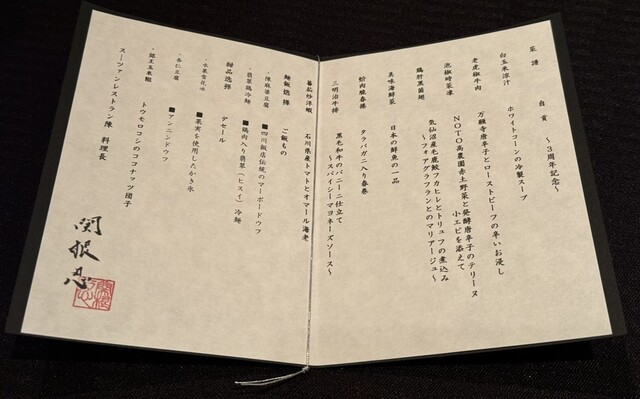 菜譜 自貢 ～3周年記念～
白玉米凉汁
ホワイトコーンの冷製スープ
老虎椒牛肉
万願寺唐辛子とローストビーフの辛いお浸し
泡椒時菜凍
NOTO高農園赤土野菜と発酵唐辛子のテリーヌ
小エビを添えて
鶏肝黒菌翅
気仙沼産毛鹿鮫フカヒレとトリュフの煮込み
～フォアグラフランとのマリアージュ～
美味海鮮菜
日本の鮮魚の一品
粉肉脆春捲
タラバガニ入り春巻
三明治牛排
黒毛和牛のパニーニ仕立て
～スパイシーマヨネーズソース～
蕃茄炒洋蝦
石川県産トマトとオマール海老
麺飯選擇
ご飯もの
・陳麻婆豆腐
■四川飯店伝統のマーボードウフ
・翡翠鶏冷麺
■鶏肉入り翡翠(ヒスイ)冷麺
甜品選擇
デセール
・水果雪花冰
■果実を使用したかき氷
・杏仁豆腐
■アンニンドウフ
トウモロコシのココナッツ団子
スーツァンレストラン陳 料理長
関根忍